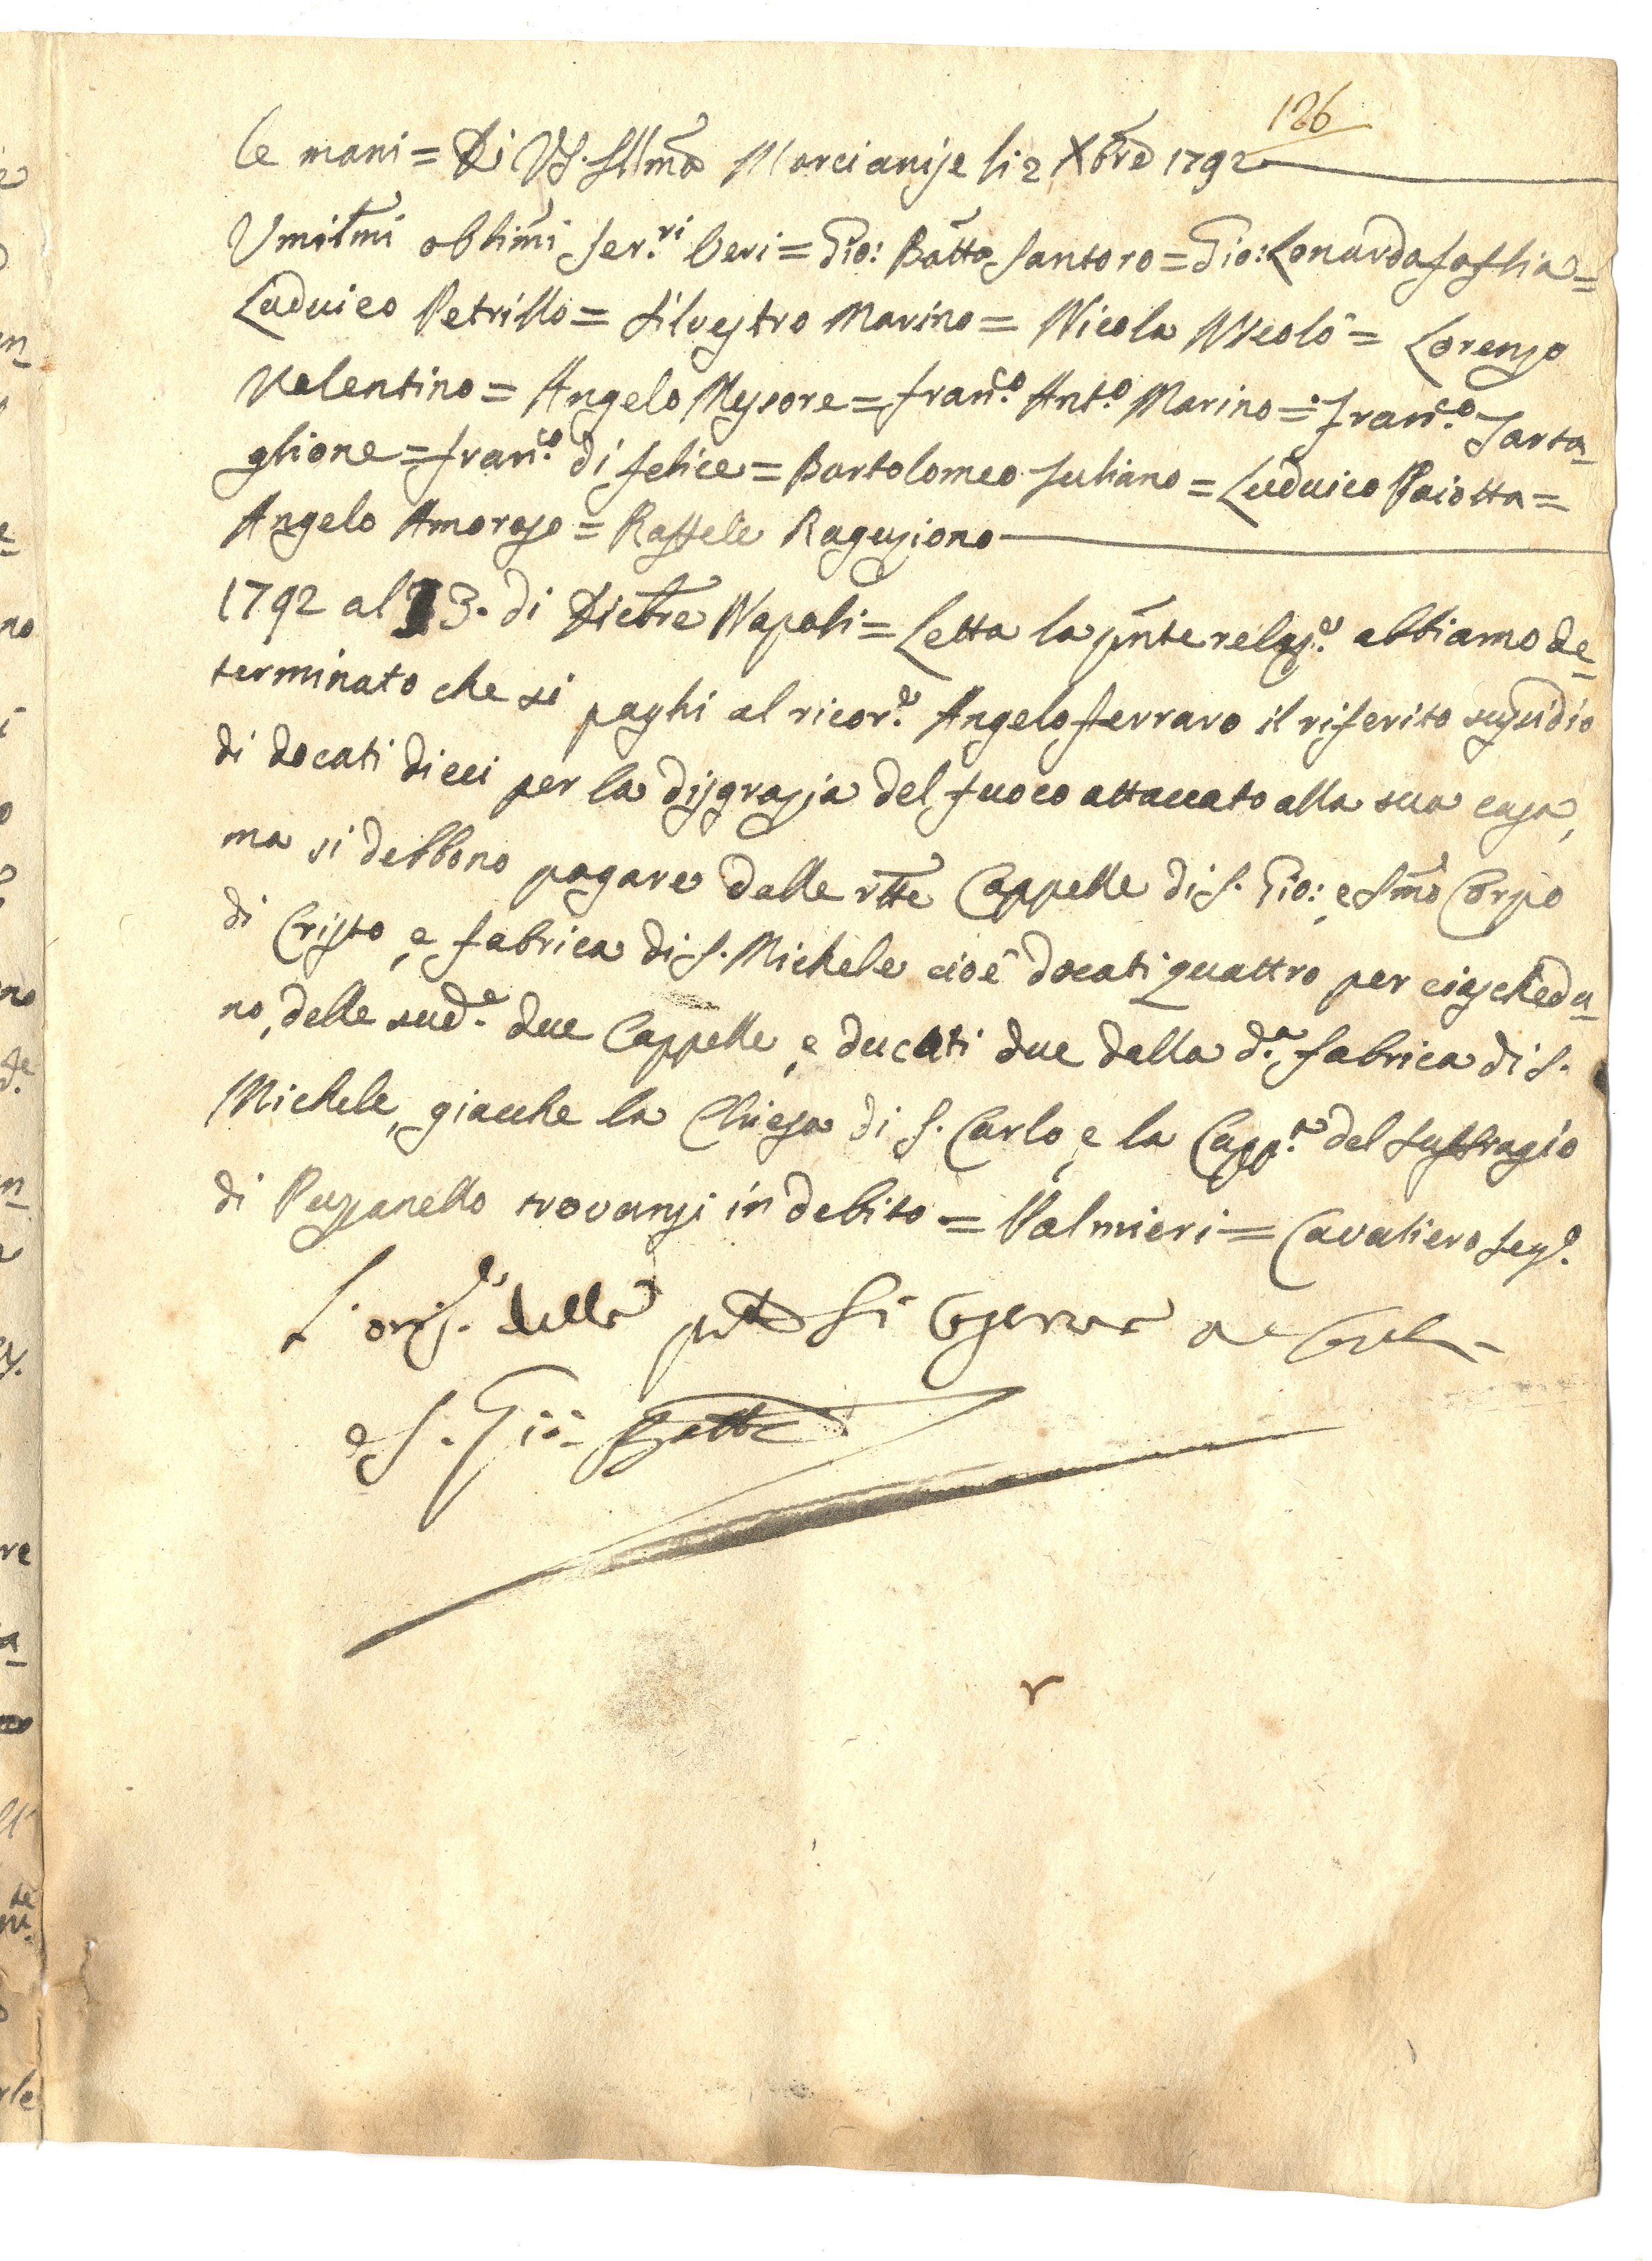 126
le mani = Di VS. Illma Marcianise li 2 Xbre 1792
Umilmi obblimi ser.ri veri = Gio: Batta Santoro = Gio: Lonardo Foglia =
Luduico Petrillo = Silvestro Marino = Nicola Nicolò = Lorenzo
Valentino = Angelo Messore = Fran.co Ant.o Marino = Fran.co Tarta
glione = Fran.co di Felice = Bartolomeo Iuliano = Luduico Paiotta =
Angelo Amoroso = Raffele Raguzione
1792 al 13. di Dicbre Napoli = Letta la pnte relaz.e abbiamo de
terminato che si paghi al ricor.e Angelo Ferraro il riferito sussidio
di docati dieci per la disgrazia del fuoco attaccato alla sua casa,
ma si debbono pagare dalle rtte Cappelle di S. Gio: e Smo Corpo
di Cristo, e fabrica di S. Michele cioè docati quattro per ciaschedu
no, delle sud.e due Cappelle, e ducati due dalla d.a fabrica di S.
Michele, giacche la Chiesa di S. Carlo, e la Capp.a del Suffragio
di Puzzanello trovansi in debito = Palmieri = Cavaliero Seg.o
L'orig.le della pnte si conserva
di S. Gio: Batta